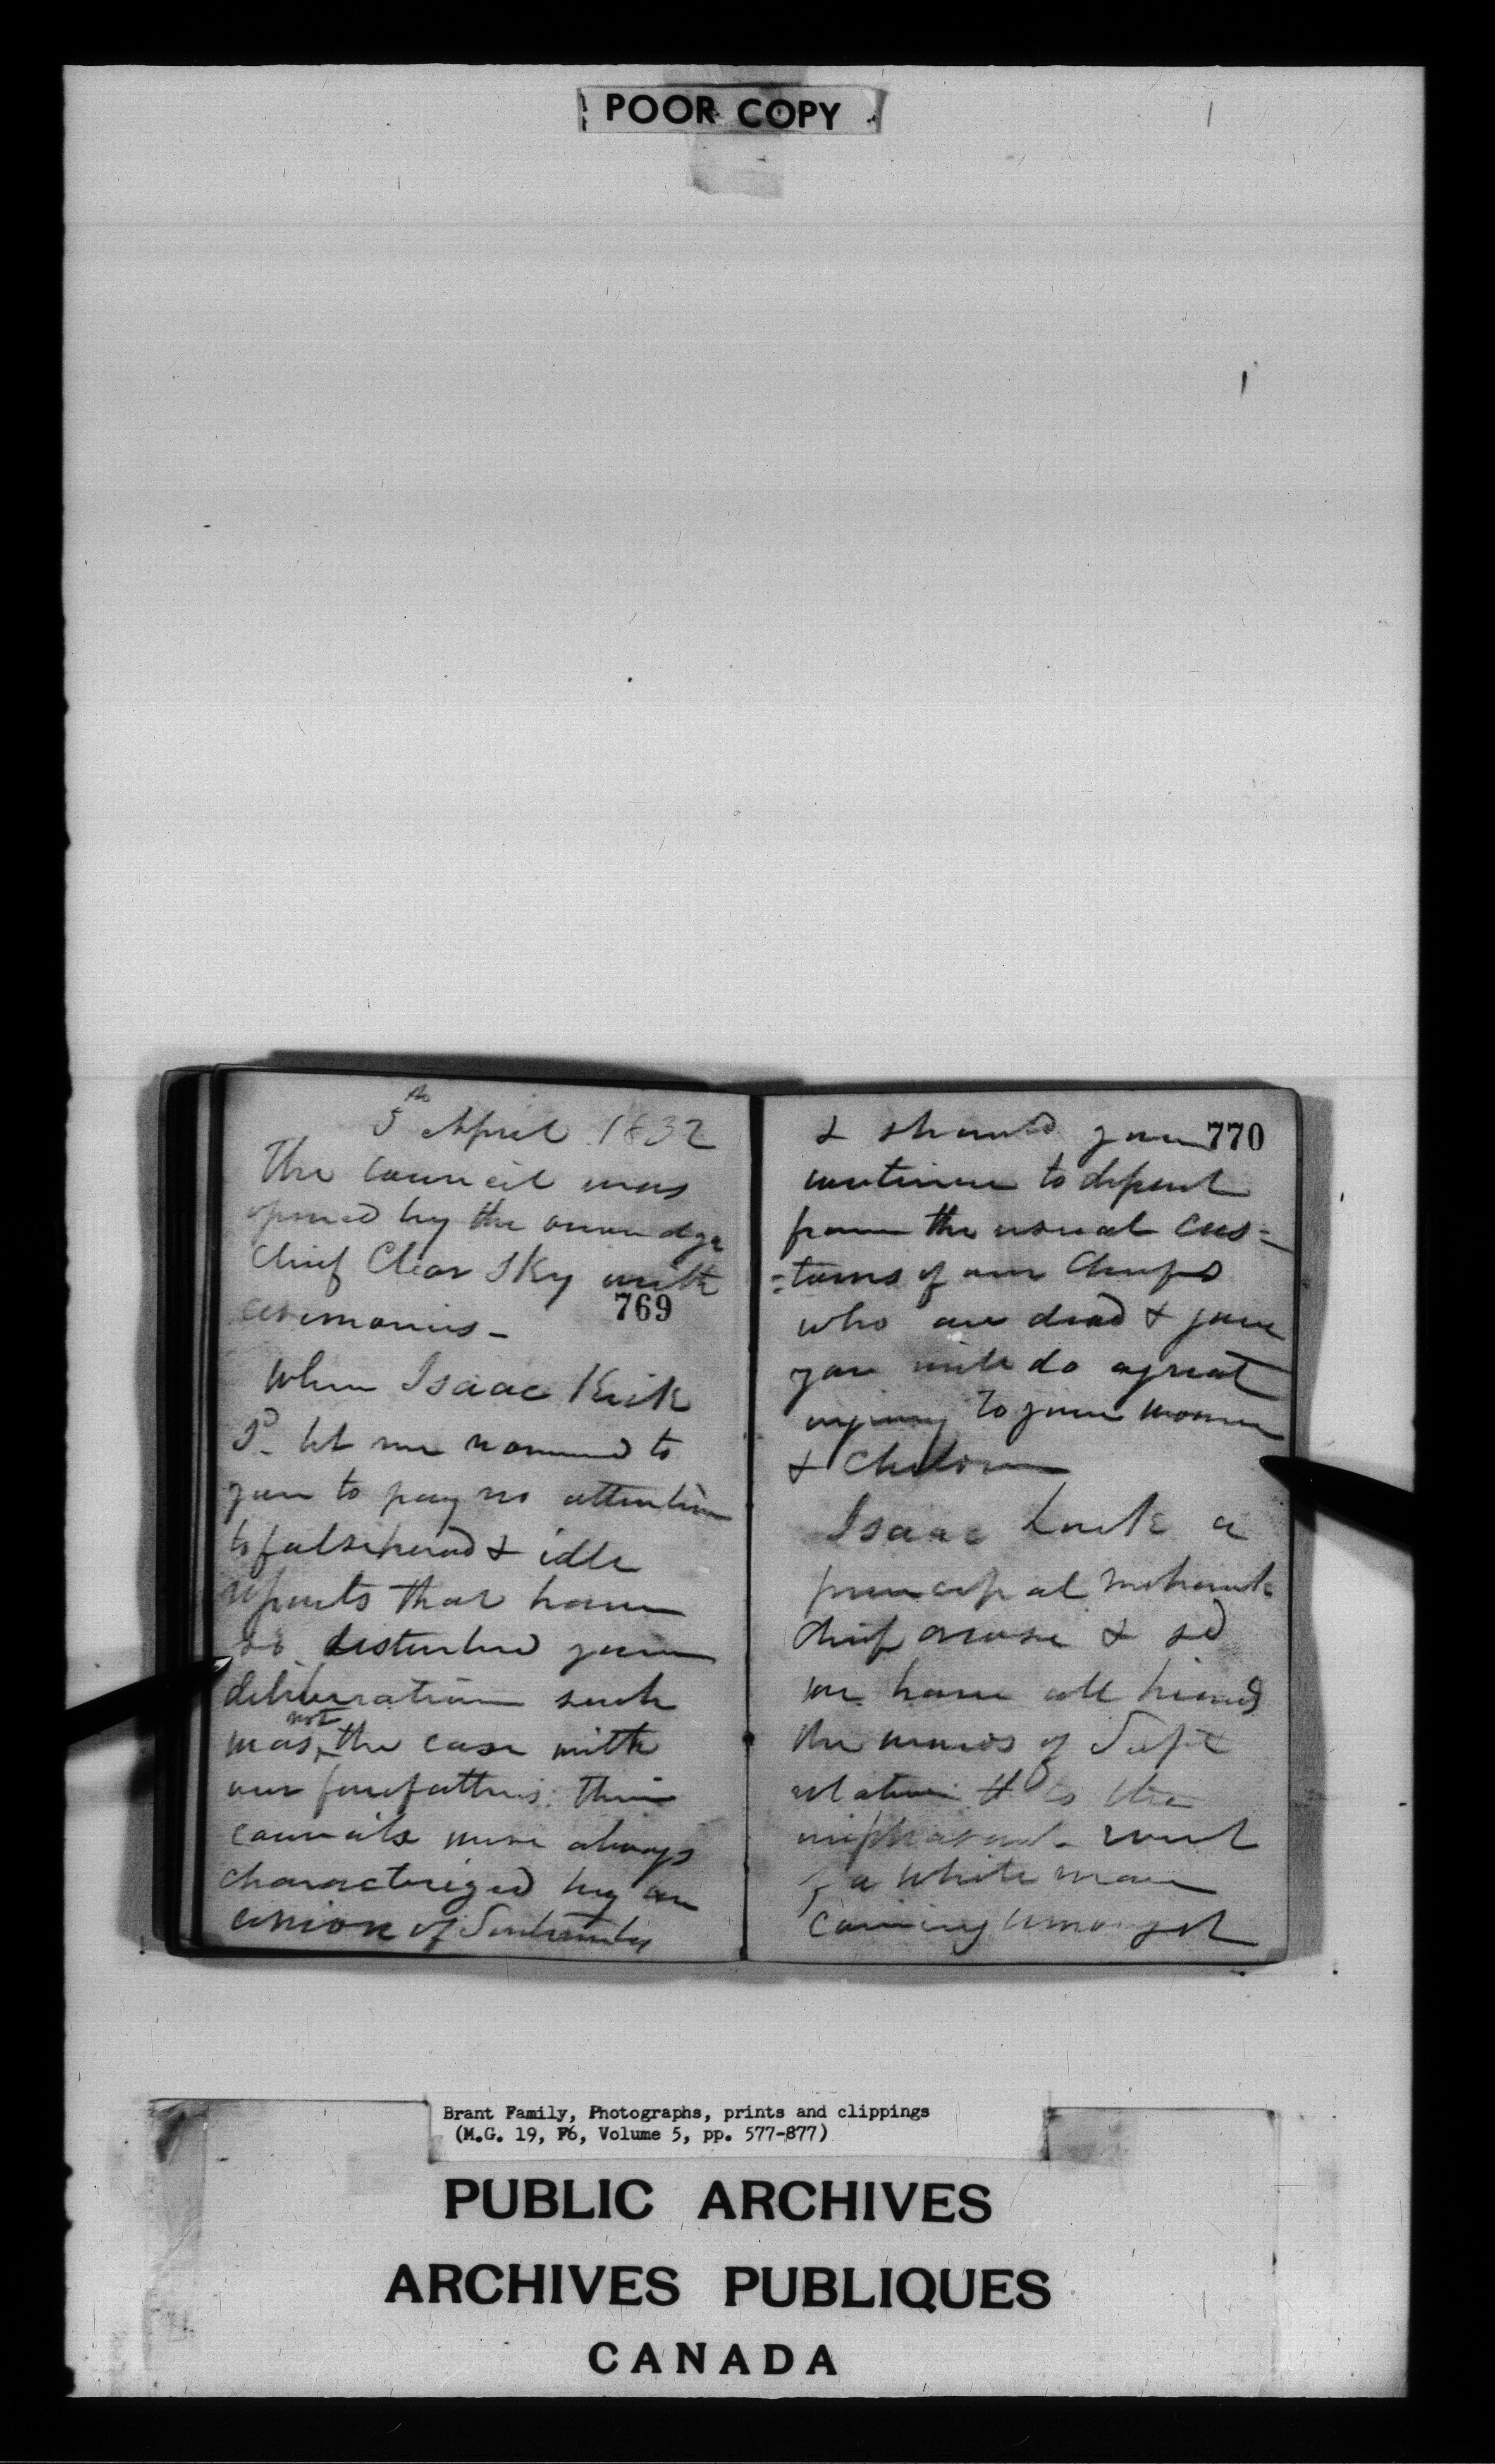 POOR COPY
5th April 1832
The council was
opened by the onondaga
Chief Clear Sky with
769
ceremonies -
When Isaac
Sd. let me recommend to
you to pay no attention
to falsehood & idle
reports that have
so disturbed your
deliberation such
not
was the case with
our forefathers. Their
councils were always
characterized by an
union of Sentiments
& should you
770
continue to depart
from the usual cus=
=toms of our Chiefs
who are dead & gone
you will do a great
injury to your women
& Children
Isaac a
principal mohawk
chief arose & sd
we have all heard
the words of Supt
relative to the
unpleasant
of a white man
coming amongst
Brant Family, Photographs, prints and clippings
(M.G. 19, F6, Volume 5, pp. 577-877)
PUBLIC ARCHIVES
ARCHIVES PUBLIQUES
CANADA